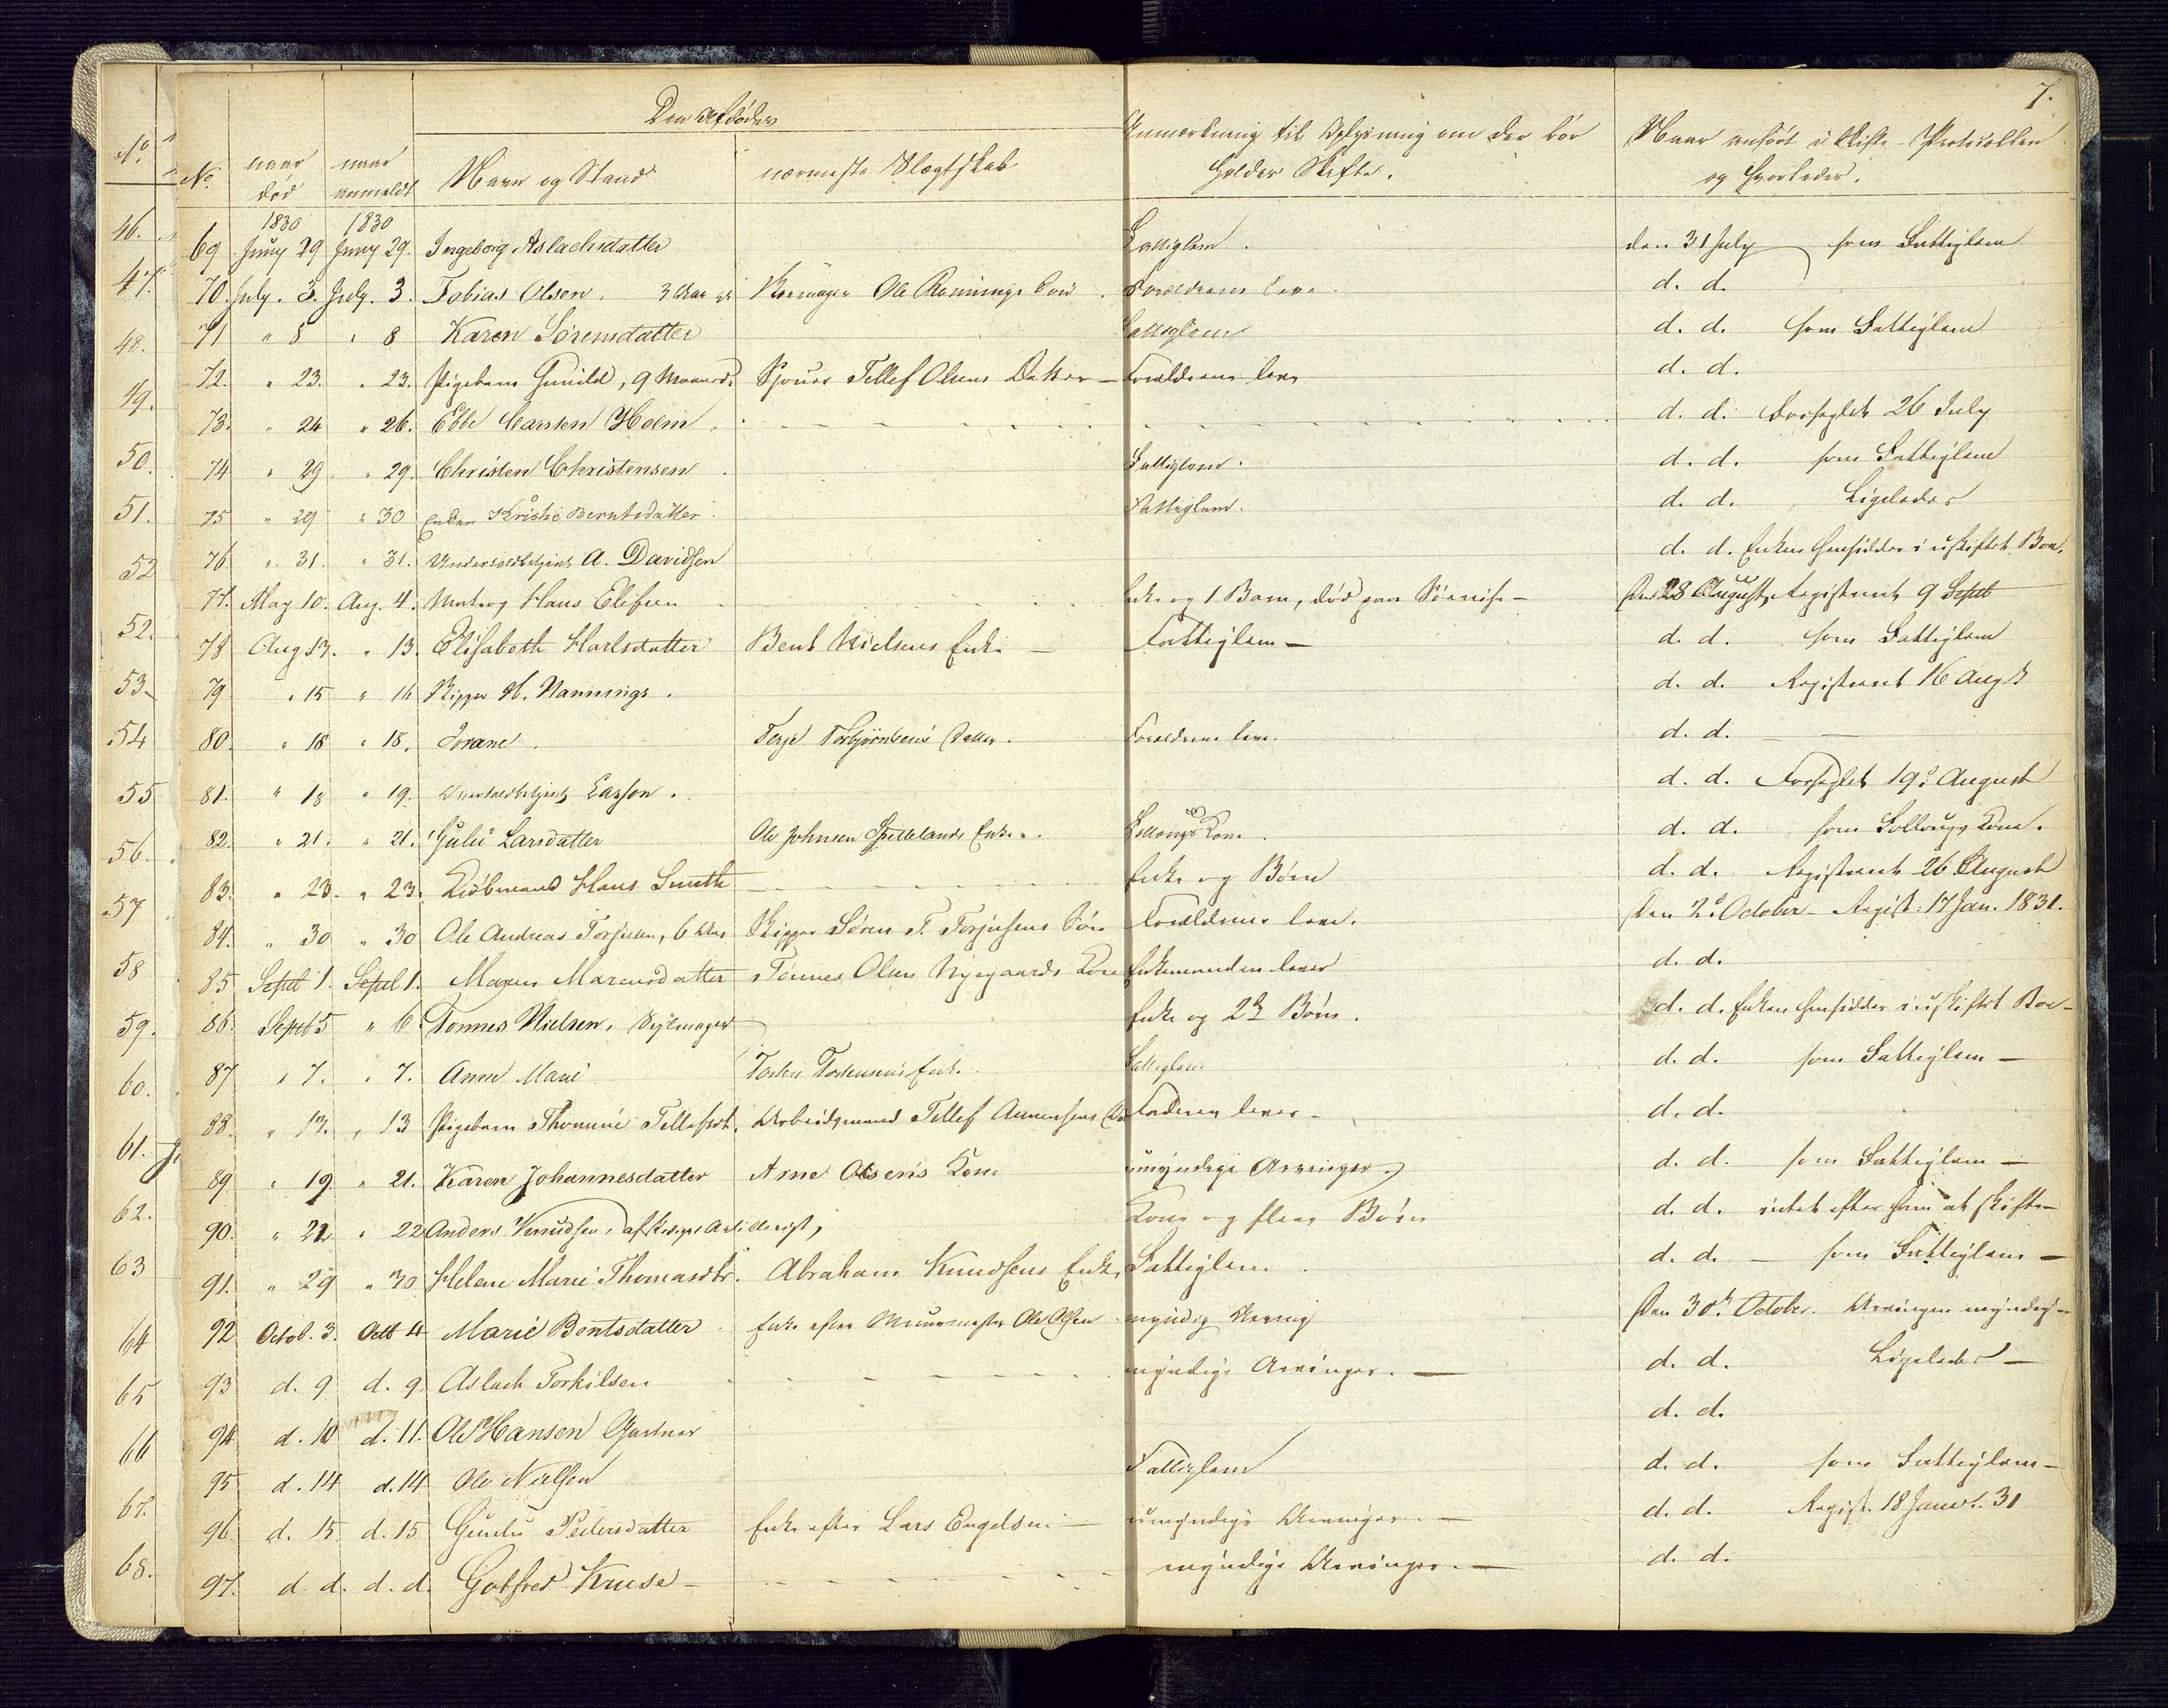 7.
Den Afdødes
No.
No.
naar død
naar anmeldt
Navn og Stand
nærmeste Slægtskab
Anmærkning til Oplysning om der bør holdes Skifte.
Naar anført i Skifte-Protocollen og hvorledes.
1830 1830
46.
69 Juny 29 Juny 29. Ingeborg Aslachsdatter Fattiglem. den 31 July som Fattiglem
47.
70. July. 3. July. 3. Tobias Olsen. 3 Aar Skomager Ole Rønnings Søn. Forældrene leve. d. d.
48.
71 " 8 " 8 Karen Sørensdatter Fattiglem d. d. som Fattiglem
72. " 23. " 23. Pigebarn Gunild, 9 Maaneder Sjouer Tellef Olsens Datter — Forældrene leve d. d.
49.
73. " 24 " 26. Ebbe Carsten Holm. d. d. Forseglet 26 July
50.
74 " 29 " 29. Christen Christensen Fattiglem. d. d. som Fattiglem
51.
75 " 29 " 30 Enken Kristie Berntsdatter Fattiglem. d. d. Ligeledes
52
76 " 31. " 31. Undertoldbetjent A. Davidsen d. d. Enken hensidder i uskiftet Boe.
77. May 10. Aug. 4. Matros Hans Ellefsen Enke og 1 Barn, død paa Søereise — Den 28 August, Registreret 9 Sept
52.
78 Aug 13. " 13. Elisabeth Karlsdatter Bent Nielsens Enke — Fattiglem — d. d. som Fattiglem
53
79 " 15 " 16 Skipper H. Nannings. d. d. Registreret 16 Aug
54
80. " 18 " 18. Jorane. Terje Torbjørnsens Datter. Forældrene leve. d. d. —
55
81. " 18 " 19. Undertoldbetjent Lasson. d. d. Forseglet 19d August
56.
82. " 21. " 21. Gulie Larsdatter Ole Johnsen Enke. Kone. d. d. som Kone.
83. " 23. " 23. Kiøbmand Hans Smith Enke og Børn d. d. Registreret 26 August
57
84. " 30 " 30 Ole Andreas Torjusen, 6 Aar Skipper Søren T. Torjusens Søn Forældrene leve. Den 2d October — Regist: 17 Jan. 1831.
58
85 Sept 1. Sept 1. Maren Marcusdatter Tønnes Olsen Nygaards Kone Enkemanden lever d. d.
59.
86. Sept 5 " 6 Tønnes Nielsen, Seylmager Enke og 2de Børn. d. d. Enken hensidder i uskiftet Boe —
60.
87 " 7. " 7. Anne Marie Enke. Fattiglem d. d. som Fattiglem —
88. " 13. " 13 Pigebarn Thomine Tellefsdt. Arbeidsmand Tellef Aanensens Faderen lever — d. d.
61.
89 " 19. " 21. Karen Johannesdatter Arne Olsens Kone umyndige Arvinger. d. d. som Fattiglem —
62.
90. " 21 " 22 Anders Knudsen, afskediget Artillerist, Kone og flere Børn d. d. intet efter ham at skifte —
63
91. " 29 " 30 Helene Marie Thomasdtr. Abraham Knudsens Enke Fattiglem. d. d. — som Fattiglem —
64
92 Octob. 3. Oct 4 Marie Bentsdatter Enke efter Muurmester Ole Olsen myndig Arving Den 30te October. Arvingen myndig —
93 d. 9 d. 9 Aslach Torkilsen myndige Arvinger. — d. d. Ligeledes —
65
94 d. 10 d. 11. Ole Hansen Gartner d. d.
66
95 d. 14 d. 14 Ole Nielsen Fattiglem d. d. som Fattiglem —
67.
96. d. 15. d. 15 Gunild Pedersdatter Enke efter Lars Engelsen — umyndige Arvinger. — d. d. Regist. 18 Janu. 31
68.
97. d. d. d. d. Gotfred Kruse — myndige Arvinger. — d. d.